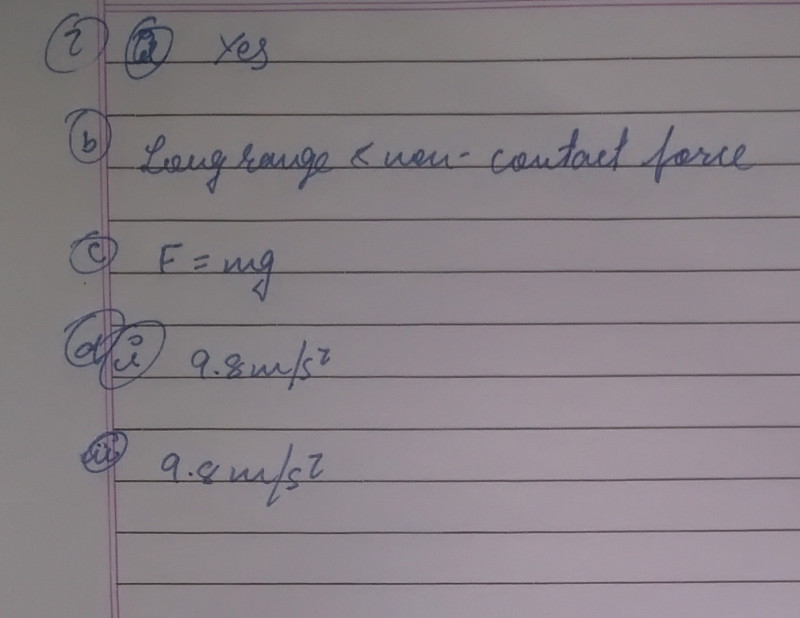 2 a Yes
b Long range & non-contact force
c F = mg
d i 9.8 m/s²
ii 9.8 m/s²